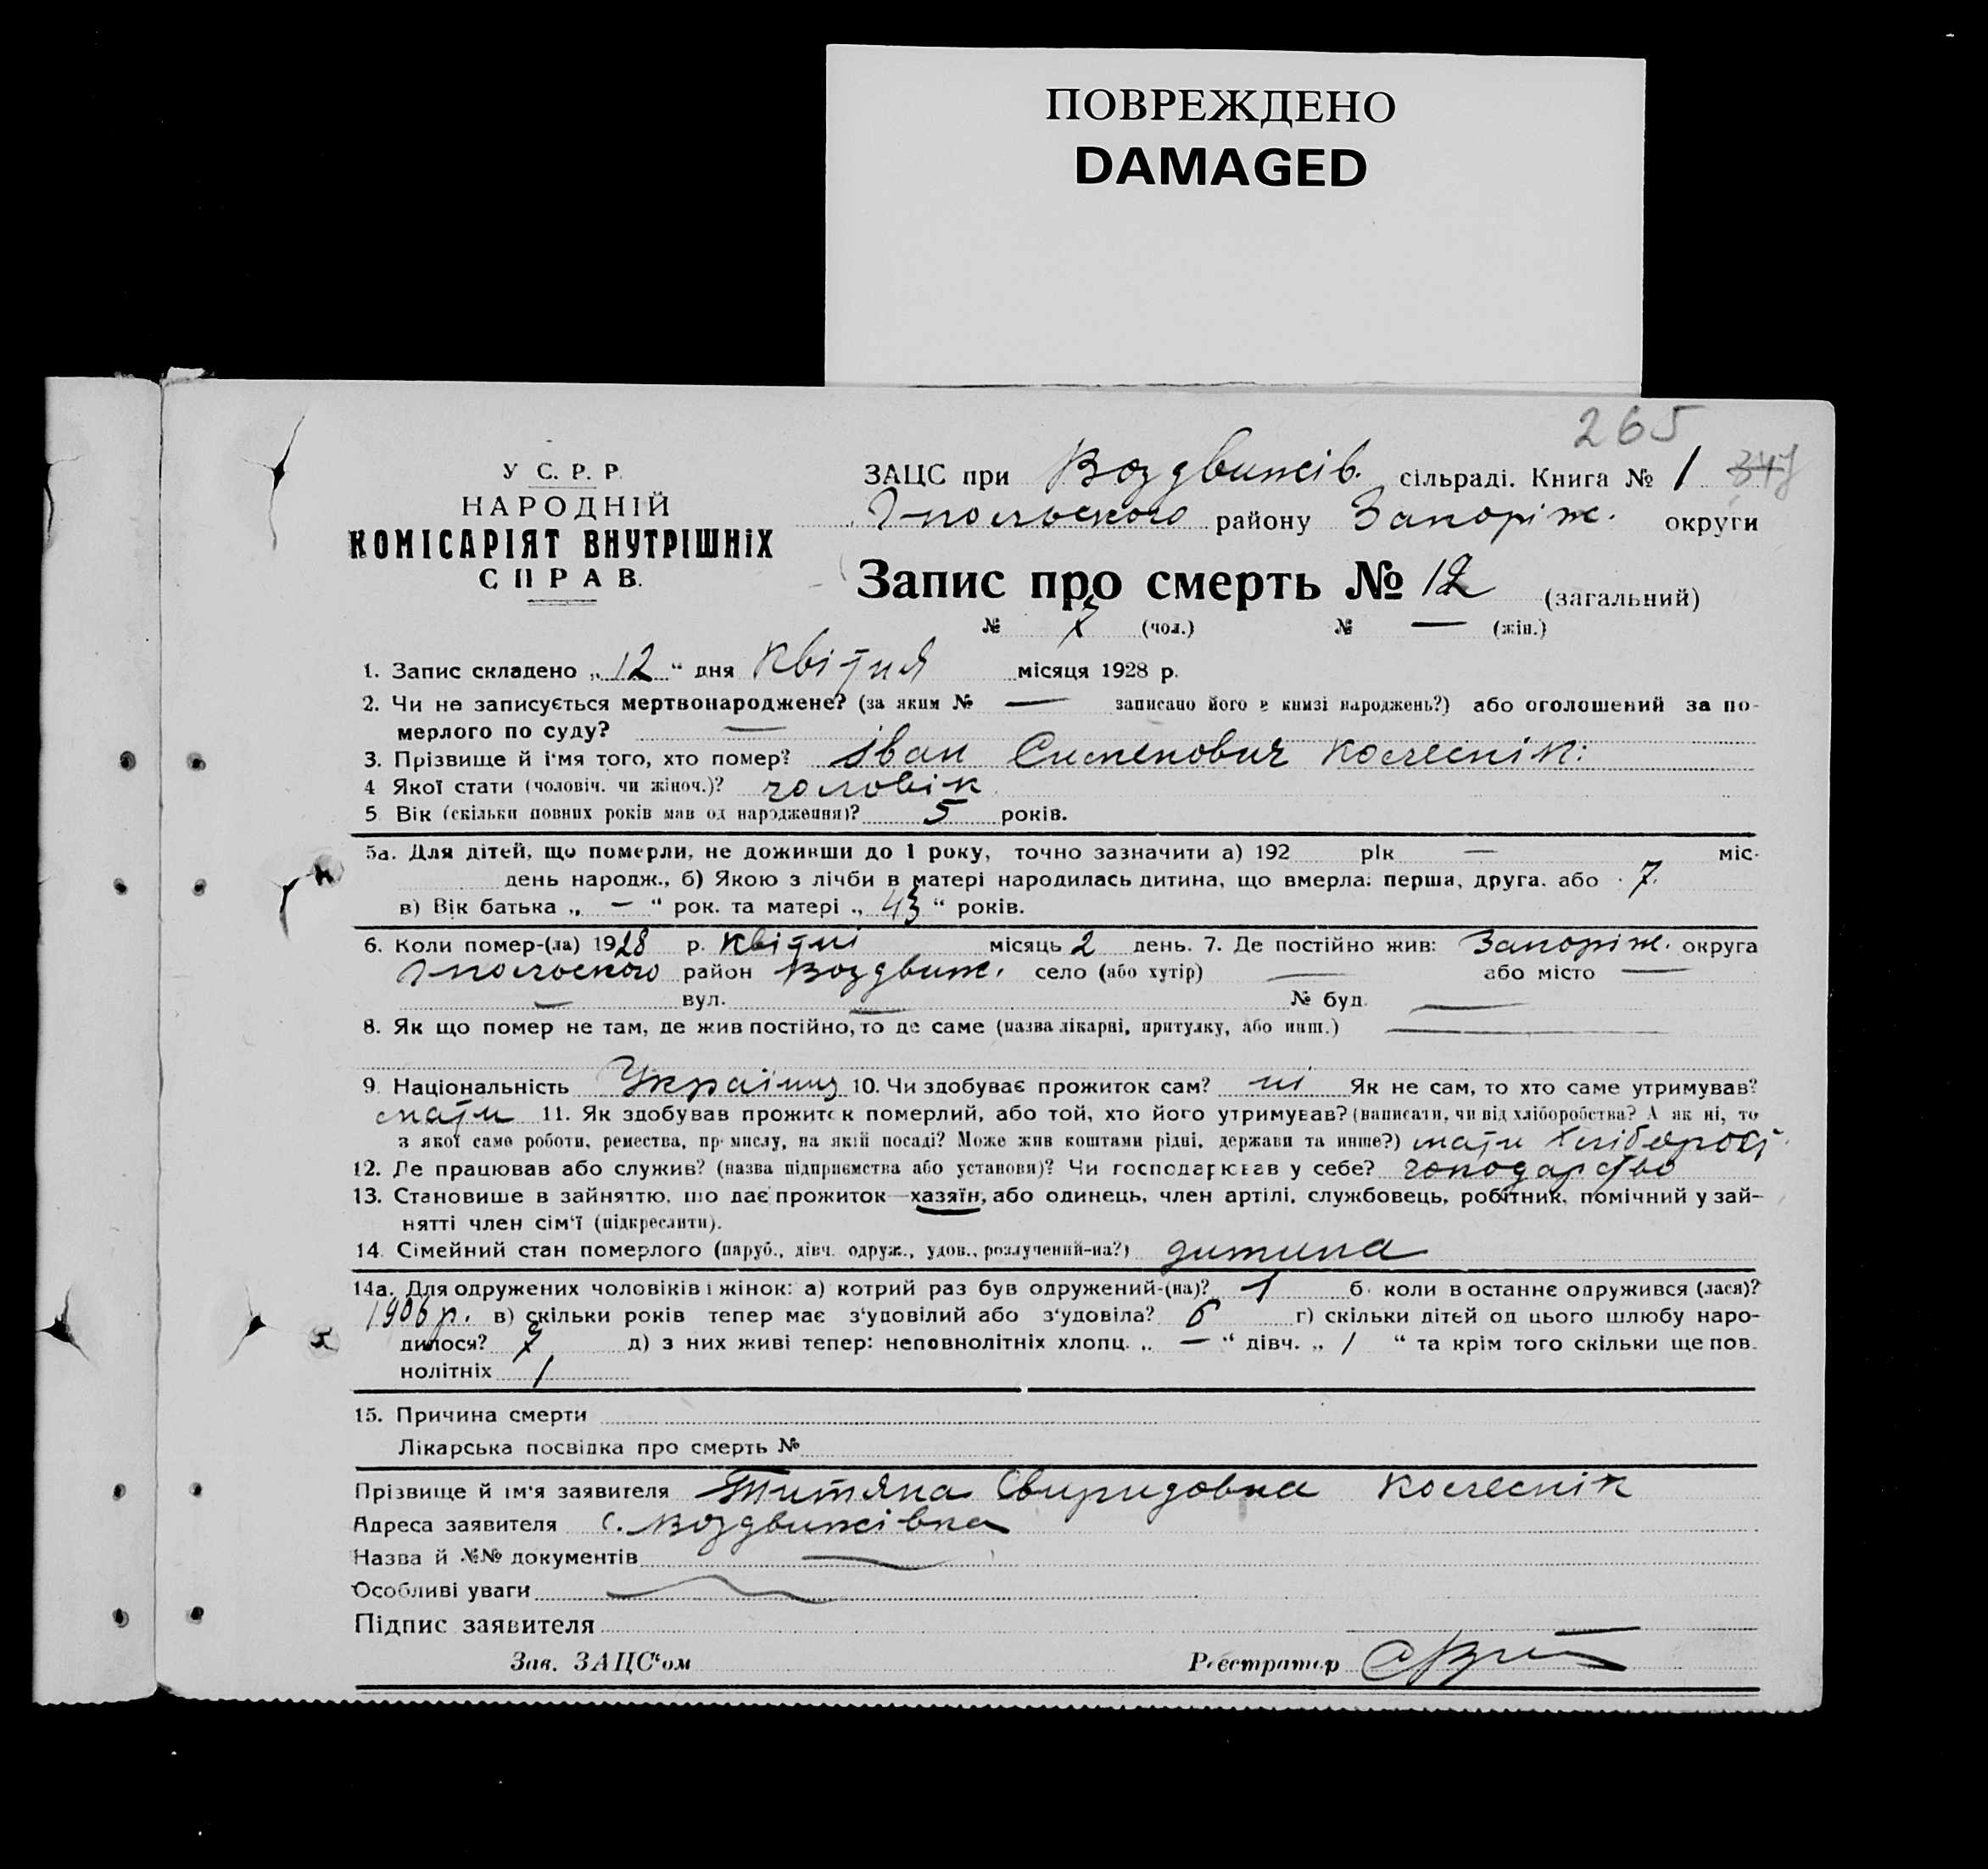 ПОВРЕЖДЕНО
DAMAGED
265
У С. Р. Р.
НАРОДНІЙ
КОМІСАРІЯТ ВНУТРІШНІХ
СПРАВ.
ЗАЦС при Воздвижів. сільраді. Книга № 1 347
району Запоріж. округи
Запис про смерть № 12 (загальний)
№ 7 (чол.) № — (жін.)
1. Запис складено „ 12 “ дня Квітня місяця 1928 р.
2. Чи не записується мертвонароджене? (за яким № — записано його в книзі народжень?) або оголошений за по-
мерлого по суду? —
3. Прізвище й ім'я того, хто помер? Іван Сименович Колеснік:
4 Якої стати (чоловіч. чи жіноч.)? чоловік
5 Вік (скільки повних років мав од народження)? 5 років.
5а. Для дітей, що померли, не доживши до 1 року, точно зазначити а) 192 рік — міс.
день народж., б) Якою з лічби в матері народилась дитина, що вмерла: перша, друга. або 7.
в) Вік батька „ — “ рок. та матері „ 43 “ років.
6. Коли помер-(ла) 1928 р. Квітні місяць 2 день. 7. Де постійно жив: Запоріж. округа
район Воздвиж. село (або хутір) — або місто —
— вул. — № буд. —
8. Як що помер не там, де жив постійно, то де саме (назва лікарні, притулку, або инш.) —
9. Національність Українц 10. Чи здобуває прожиток сам? ні Як не сам, то хто саме утримував?
мати 11. Як здобував прожиток померлий, або той, хто його утримував? (написати, чи від хліборобства? А як ні, то
з якої саме роботи, ремества, промислу, на якій посаді? Може жив коштами рідні, держави та инше?) мати
12. Де працював або служив? (назва підприємства або установи)? Чи господарював у себе?
13. Становише в зайняттю, що дає прожиток—хазяїн, або одинець, член артілі, службовець, робітник, помічний у зай-
нятті член сім'ї (підкреслити).
14. Сімейний стан померлого (паруб., дівч. одруж., удов., розлучений-на?) дитина
14а. Для одружених чоловіків і жінок: а) котрий раз був одружений-(на)? 1 б. коли востаннє одружився (лася)?
1906 р. в) скільки років тепер має з'удовілий або з'удовіла? 6 г) скільки дітей од цього шлюбу наро-
дилося? 7 д) з них живі тепер: неповнолітніх хлопц. „ — “ дівч. „ 1 “ та крім того скільки ще пов.
нолітніх 1
15. Причина смерти
Лікарська посвідка про смерть №
Прізвище й ім'я заявителя Титяна Свиридовна Колеснік
Адреса заявителя с. Воздвижівка
Назва й №№ документів —
Особливі уваги
Підпис заявителя
Зав. ЗАЦС'ом Реєстратор